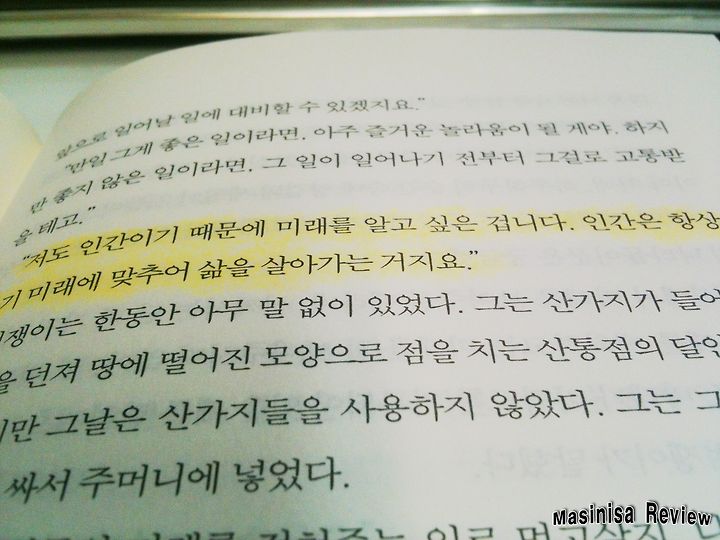 앞으로 일어날 일에 대비할 수 있겠지요.”
“만일 그게 좋은 일이라면, 아주 즐거운 놀라움이 될 게야. 하지
만 좋지 않은 일이라면, 그 일이 일어나기 전부터 그걸로 고통받
을 테고.”
“저도 인간이기 때문에 미래를 알고 싶은 겁니다. 인간은 항상
기 미래에 맞추어 삶을 살아가는 거지요.”
쟁이는 한동안 아무 말 없이 있었다. 그는 산가지가 들어
을 던져 땅에 떨어진 모양으로 점을 치는 산통점의 달인
지만 그날은 산가지들을 사용하지 않았다. 그는 그
싸서 주머니에 넣었다.
Masinisa Review